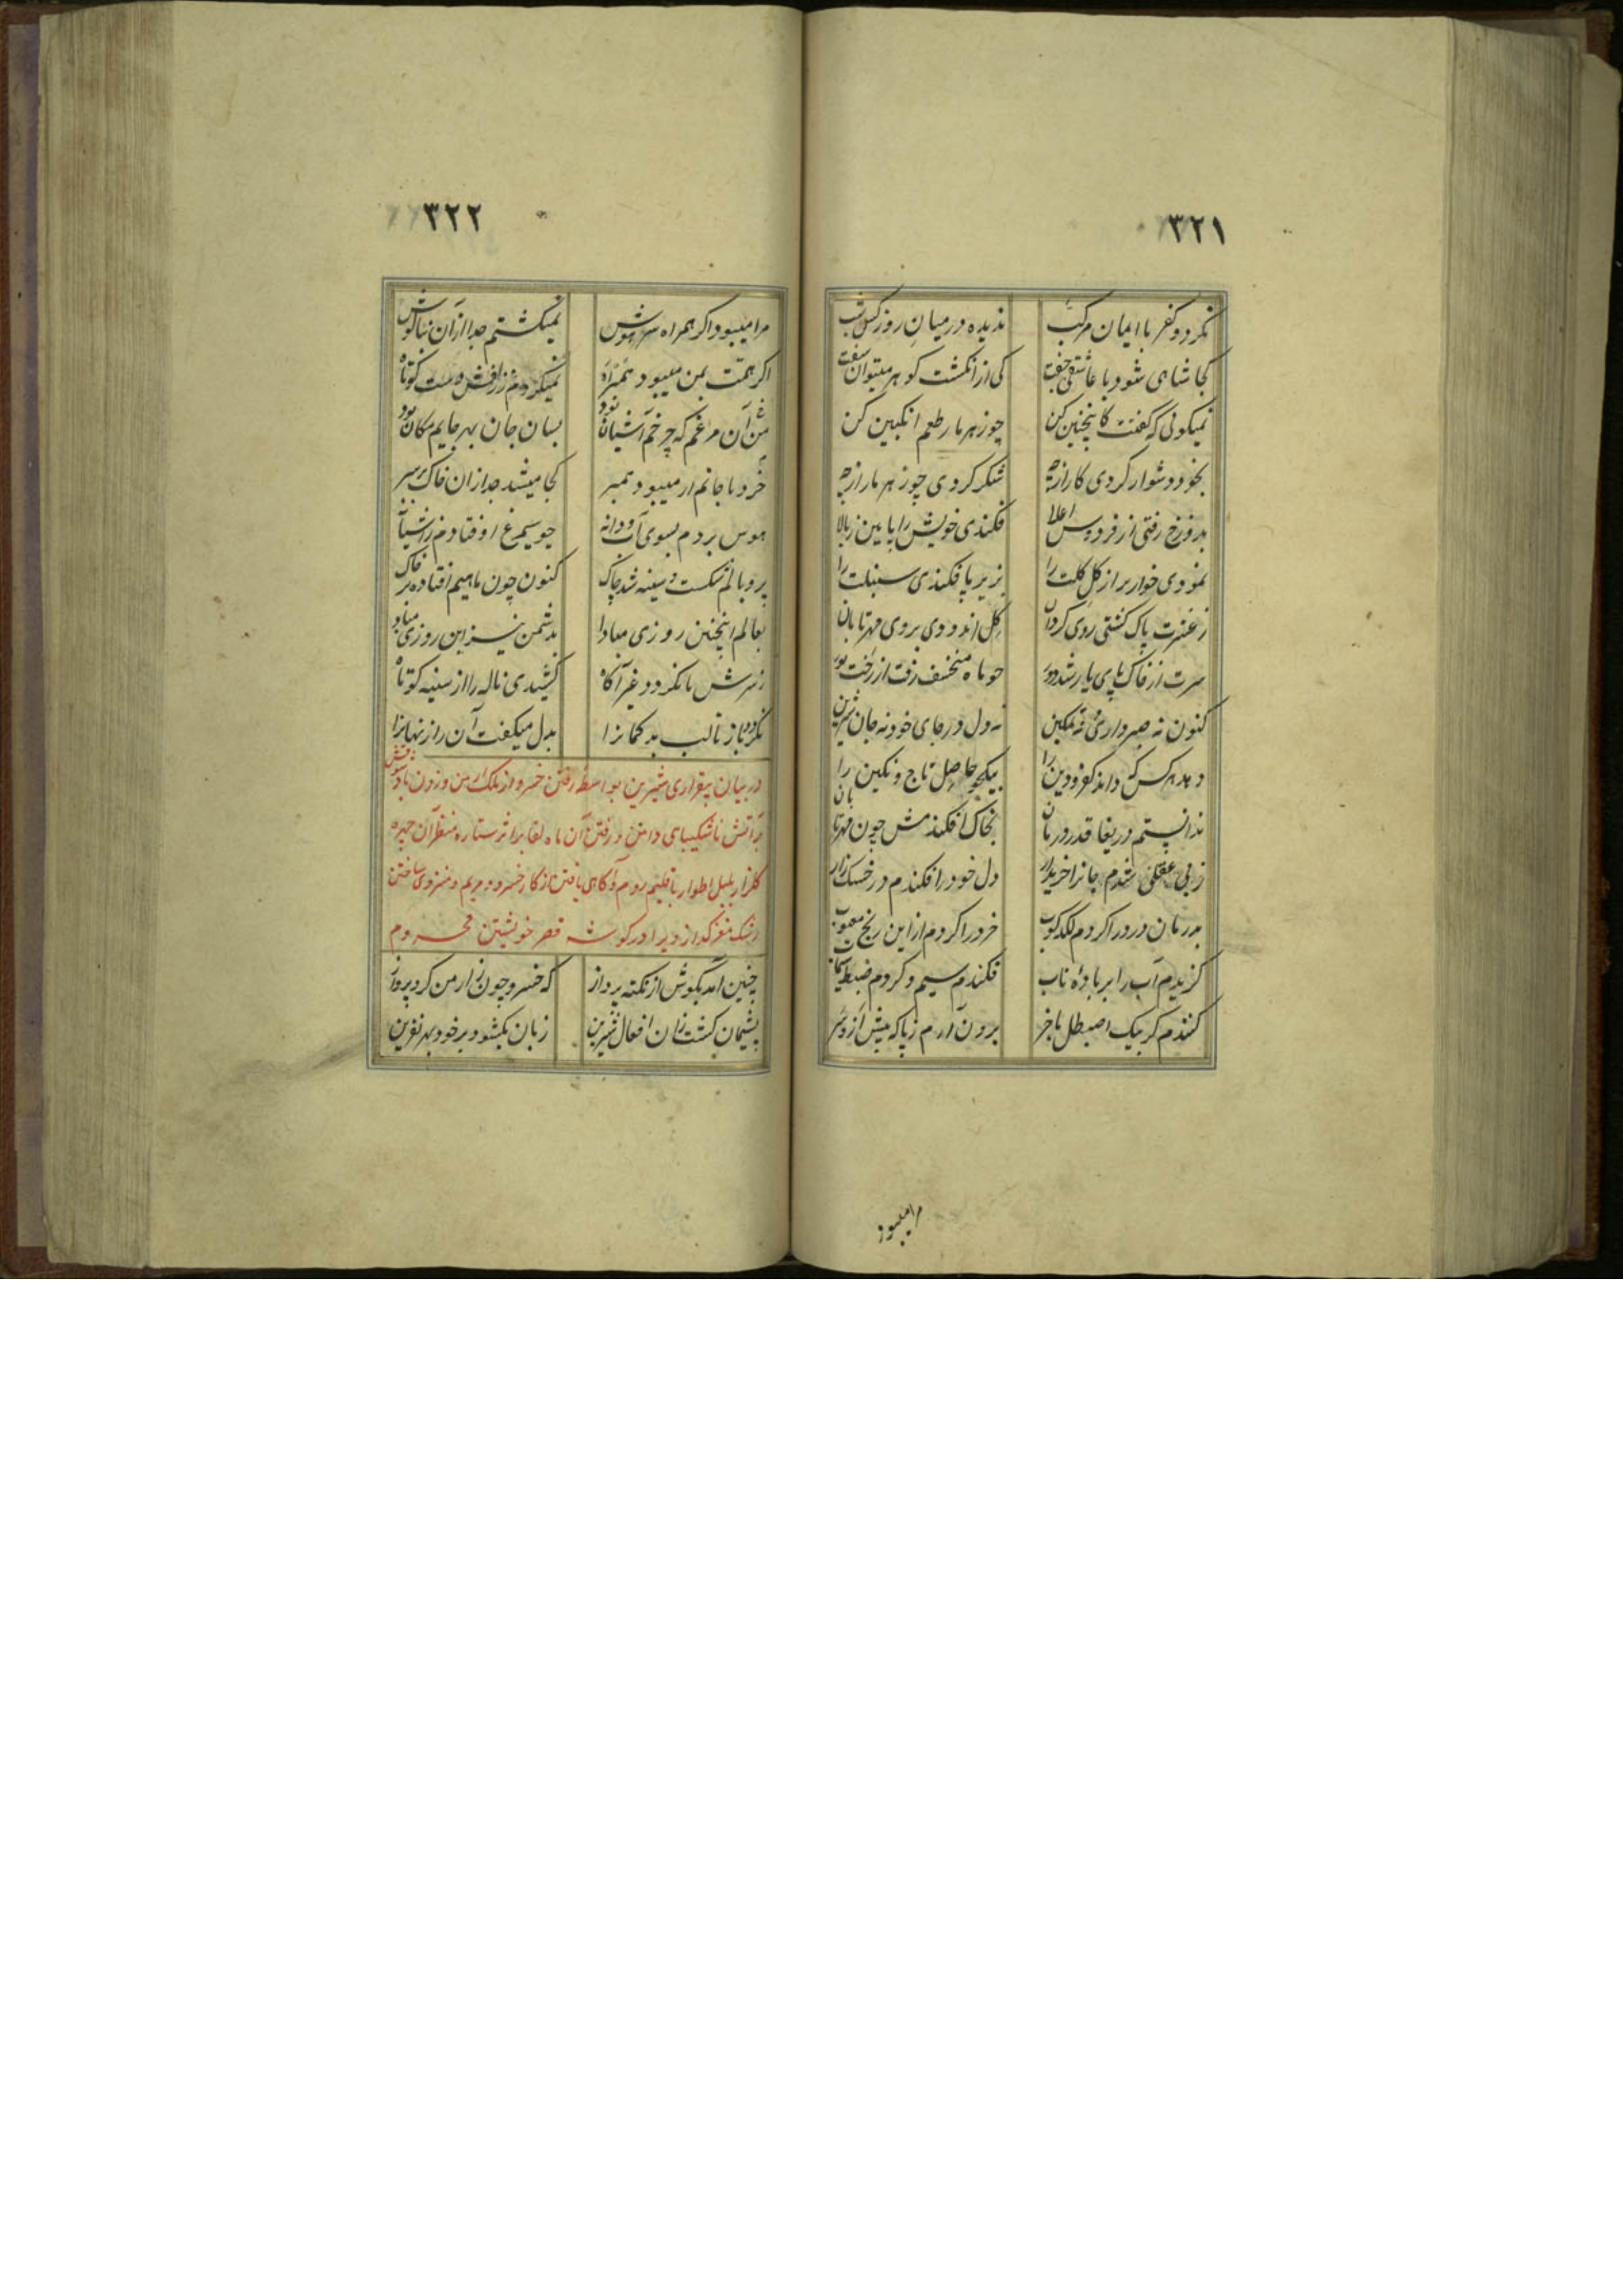 ۳۲۱
نکردد کفر با ایمان مرکب ندیده در میان روز کس شب
کجا شاهی شود با عاشقی جفت کی از انکشت کوهر میتوان سفت
نمیکوئی که گفتت کاینچنین کن چو زهر مار طعم انکبین کن
بخود دشوار کردی کار از چه شکر کردی چو زهر مار از چه
بدوزخ رفتی از فردوس اعلا فکندی خویش را پایین ز بالا
نمودی خوارتر از کل کلت را بزیر پا فکندی سنبلت را
ز عنبرت پاک کشتی روی کردان کل اندودی بروی مهر تابان
سرت از خاک پای یار شد دور چو ماه منخسف رفت از رخت نور
کنون نه صبر داری نه تمکین نه دل در جای خود نه جان شیرین
دهد هر کس که داند کفر و دین را بیکجو حاصل تاج و نکین را
ندانستم دریغا قدر درمان بخاک افکندمش چون مهر تابان
ز بی عقلی شدم جانرا خریدار دل خود را فکندم در خسک زار
بدرمان درد را کردم لکدکوب خرد را کردم از این رنج معیوب
کزیدم آب را بر باده ناب فکندم سیم و کردم ضبط سیماب
کنندم کر بیک اصطبل با خر برون آرم ز پا که بیش از و سر
مرا میبود
۳۲۲
مرا میبود اکر همراه سر هوش نمیکشتم جدا از آن بناکوش
اکر همت بمن میبود همراه نمیکردم ز زلفش دست کوتاه
من آن مرغم که چرخم آشیان بود بسان جان بهر جایم مکان بود
خرد با جانم ار میبود همبر کجا میشد جدا زان خاک بر سر
هوس بردم بسوی آب و دانه چو سیمرغ اوفتادم ز آشیانه
پر و بالم شکست و سینه شد چاک کنون چون ماهیم افتاده بر خاک
بعالم اینچنین روزی مبادا بدشمن نیز این روزی مبادا
ز سرش تا نکردد غیر آکاه کشیدی ناله را از سینه کوتاه
نکردد باز تا لب بد کمانرا بدل میکفت آن راز نهانرا
در بیان بیقراری شیرین بواسطه رفتن خسرو از ملک ارمن و زدن باد شوقش
بر آتش ناشکیبایی دامن و رفتن آن ماه لقا بر اثر ستاره منظر آن چهره
کلزار بلبل اطوار باقلیم روم و آکاهی یافتن از کار خسرو و مریم و منزوی ساختن
رشک مغز کداز ویرا در کوشه قصر خویشتن محروم
چنین آمد بکوش از نکته پرداز که خسرو چون ز ارمن کرد پرواز
پشیمان کشت زان افعال شیرین زبان بکشود بر خود بهر نفرین